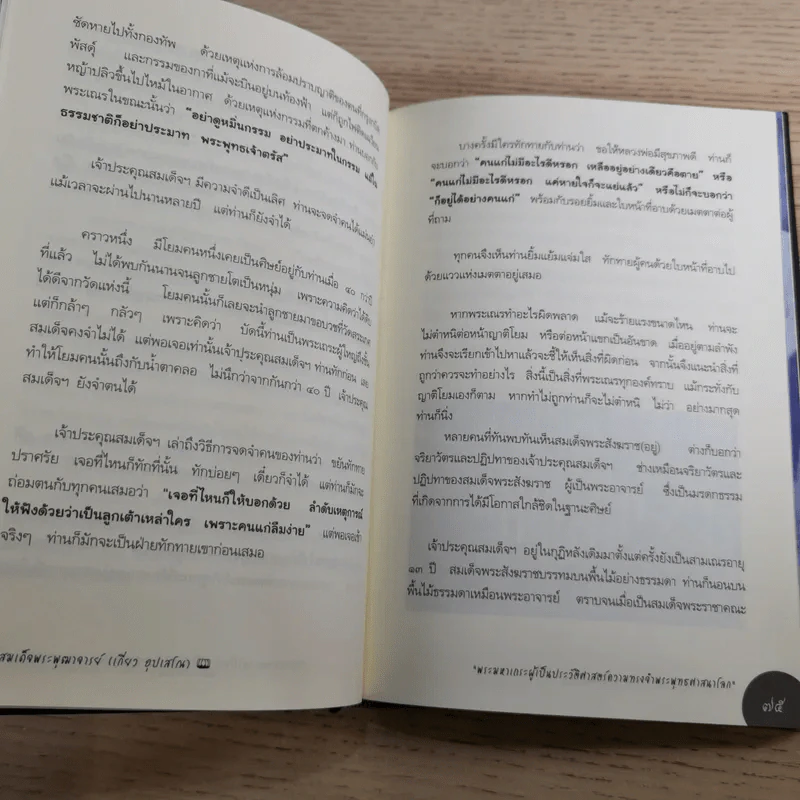 ซัดหายไปทั้งกองทัพ ด้วยเหตุแห่งการล้อมปราบญาติของตนที่กรุงกบิล
พัสดุ์ และกรรมของกาที่แม้จะบินอยู่บนท้องฟ้า แต่ก็ถูกไฟ
หญ้าปลิวขึ้นไปไหม้ในอากาศ ด้วยเหตุแห่งกรรมที่ตกค้างมา ท่าน
พระเณรในขณะนั้นว่า "อย่าดูหมิ่นกรรม อย่าประมาทในกรรม แม้ใน
ธรรมชาติก็อย่าประมาท พระพุทธเจ้าตรัส"
เจ้าประคุณสมเด็จฯ มีความจำดีเป็นเลิศ ท่านจะจดจำคนได้แม่นยำ
แม้เวลาจะผ่านไปนานหลายปี แต่ท่านก็ยังจำได้
คราวหนึ่ง มีโยมคนหนึ่งเคยเป็นศิษย์อยู่กับท่านเมื่อ ๔๐ กว่าปี
ที่แล้ว ไม่ได้พบกันนานจนลูกชายโตเป็นหนุ่ม เพราะความคิดว่าได้ดิบ
ได้ดีจากวัดแห่งนี้ โยมคนนั้นก็เลยจะนำลูกชายมาขอบวชที่วัดสระเกศ
แต่ก็กล้าๆ กลัวๆ เพราะคิดว่า บัดนี้ท่านเป็นพระเถระผู้ใหญ่ถึงชั้น
สมเด็จคงจำไม่ได้ แต่พอเจอเท่านั้นเจ้าประคุณสมเด็จฯ ท่านทักก่อน เลย
ทำให้โยมคนนั้นถึงกับน้ำตาคลอ ไม่นึกว่าจากกันกว่า ๔๐ ปี เจ้าประคุณ
สมเด็จฯ ยังจำตนได้
เจ้าประคุณสมเด็จฯ เล่าถึงวิธีการจดจำคนของท่านว่า ขยันทักทาย
ปราศรัย เจอที่ไหนก็ทักที่นั้น ทักบ่อยๆ เดี๋ยวก็จำได้ แต่ท่านก็มักจะ
ถ่อมตนกับทุกคนเสมอว่า "เจอที่ไหนก็ให้บอกด้วย ลำดับเหตุการณ์
ให้ฟังด้วยว่าเป็นลูกเต้าเหล่าใคร เพราะคนแก่ลืมง่าย" แต่พอเจอเข้า
จริงๆ ท่านก็มักจะเป็นฝ่ายทักทายเขาก่อนเสมอ
สมเด็จพระพุฒาจารย์ เกี่ยว อุปเสโณ
บางครั้งมีใครทักทายกับท่านว่า ขอให้หลวงพ่อมีสุขภาพดี ท่านก็
จะบอกว่า "คนแก่ไม่มีอะไรดีหรอก เหลืออยู่อย่างเดียวคือตาย" หรือ
"คนแก่ไม่มีอะไรดีหรอก แค่หายใจก็จะแย่แล้ว" หรือไม่ก็จะบอกว่า
"ก็อยู่ได้อย่างคนแก่" พร้อมกับรอยยิ้มและใบหน้าที่อาบด้วยเมตตาต่อผู้
ที่ถาม
ทุกคนจึงเห็นท่านยิ้มแย้มแจ่มใส ทักทายผู้คนด้วยใบหน้าที่อาบไป
ด้วยแววแห่งเมตตาอยู่เสมอ
หากพระเณรทำอะไรผิดพลาด แม้จะร้ายแรงขนาดไหน ท่านจะ
ไม่ตำหนิต่อหน้าญาติโยม หรือต่อหน้าแขกเป็นอันขาด เมื่ออยู่ตามลำพัง
ท่านจึงจะเรียกเข้าไปหาแล้วจะชี้ให้เห็นสิ่งที่ผิดก่อน จากนั้นจึงแนะนำสิ่งที่
ถูกว่าควรจะทำอย่างไร สิ่งนี้เป็นสิ่งที่พระเณรทุกองค์ทราบ แม้กระทั่งกับ
ญาติโยมเองก็ตาม หากทำไม่ถูกท่านก็จะไม่ตำหนิ ไม่ว่า อย่างมากสุด
ท่านก็นิ่ง
หลายคนที่ทันพบทันเห็นสมเด็จพระสังฆราช(อยู่) ต่างก็บอกว่า
จริยาวัตรและปฏิปทาของเจ้าประคุณสมเด็จฯ ช่างเหมือนจริยาวัตรและ
ปฏิปทาของสมเด็จพระสังฆราช ผู้เป็นพระอาจารย์ ซึ่งเป็นมรดกธรรม
ที่เกิดจากการได้มีโอกาสใกล้ชิดในฐานะศิษย์
เจ้าประคุณสมเด็จฯ อยู่ในกุฏิหลังเดิมมาตั้งแต่ครั้งยังเป็นสามเณรอายุ
๑๓ ปี สมเด็จพระสังฆราชบรรทมบนพื้นไม้อย่างธรรมดา ท่านก็นอนบน
พื้นไม้ธรรมดาเหมือนพระอาจารย์ ตราบจนเมื่อเป็นสมเด็จพระราชาคณะ
"พระมหาเถระผู้เป็นประวัติศาสตร์ความทรงจำพระพุทธศาสนาโลก"
๗๕